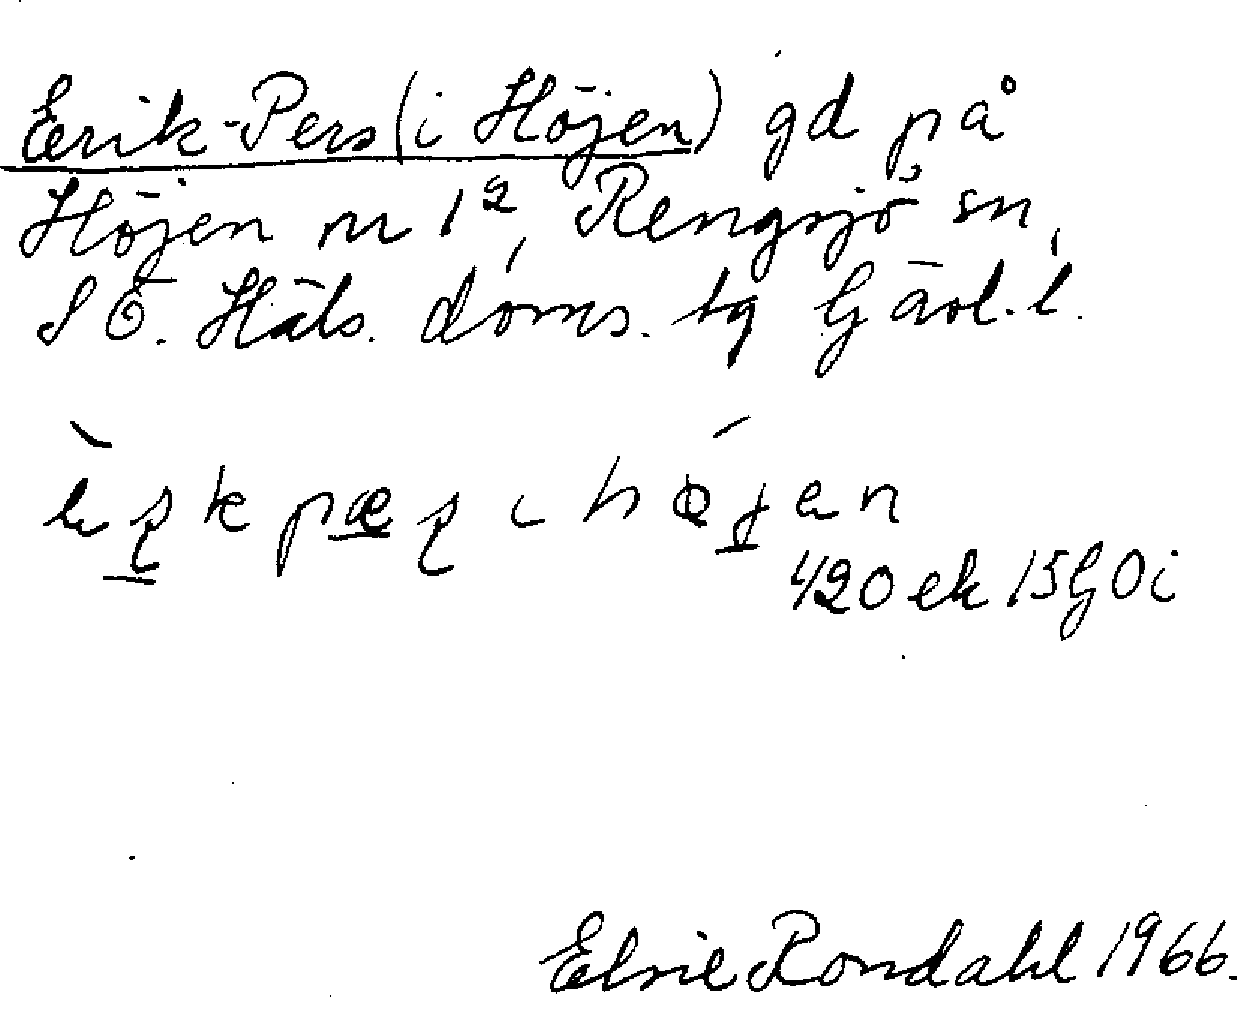 Erik-Pers (i Höjen) gd på
Höjen nr 1², Rengsjö sn,
S Ö. Häls. doms. tg Gävl. l.
i höjen
1/20 ek 15G0i
Elsie Rondahl 1966.